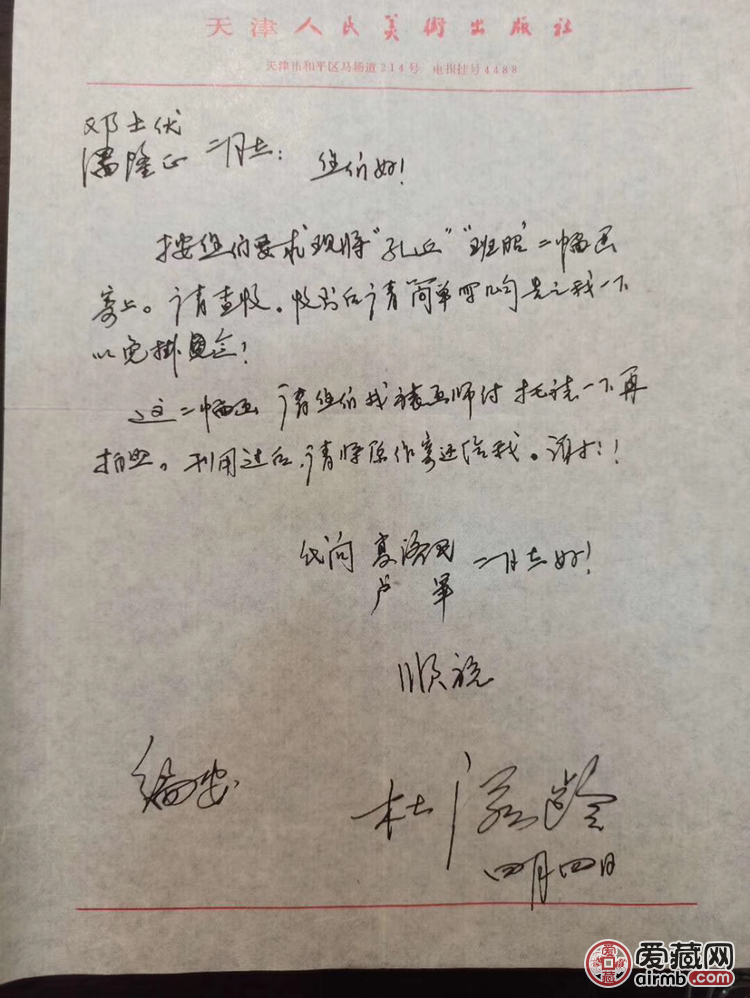 天津人民美術出版社
天津市和平区马场道214号 电报挂号4488
邓士伏
潘隆正 二同志： 您们好！
按您们要求现将“孔丘”“班昭”二幅画
寄上。请查收。收到后请简单写几句告之我一下
以免掛念！
这二幅画 请您们找裱画师付托裱一下再
拍照。利用过后，请将原作寄还给我。谢谢！！
代问 夏洛
卢 二同志好！
顺祝
编安
杜滋龄
四月四日
爱藏网
airmb.com